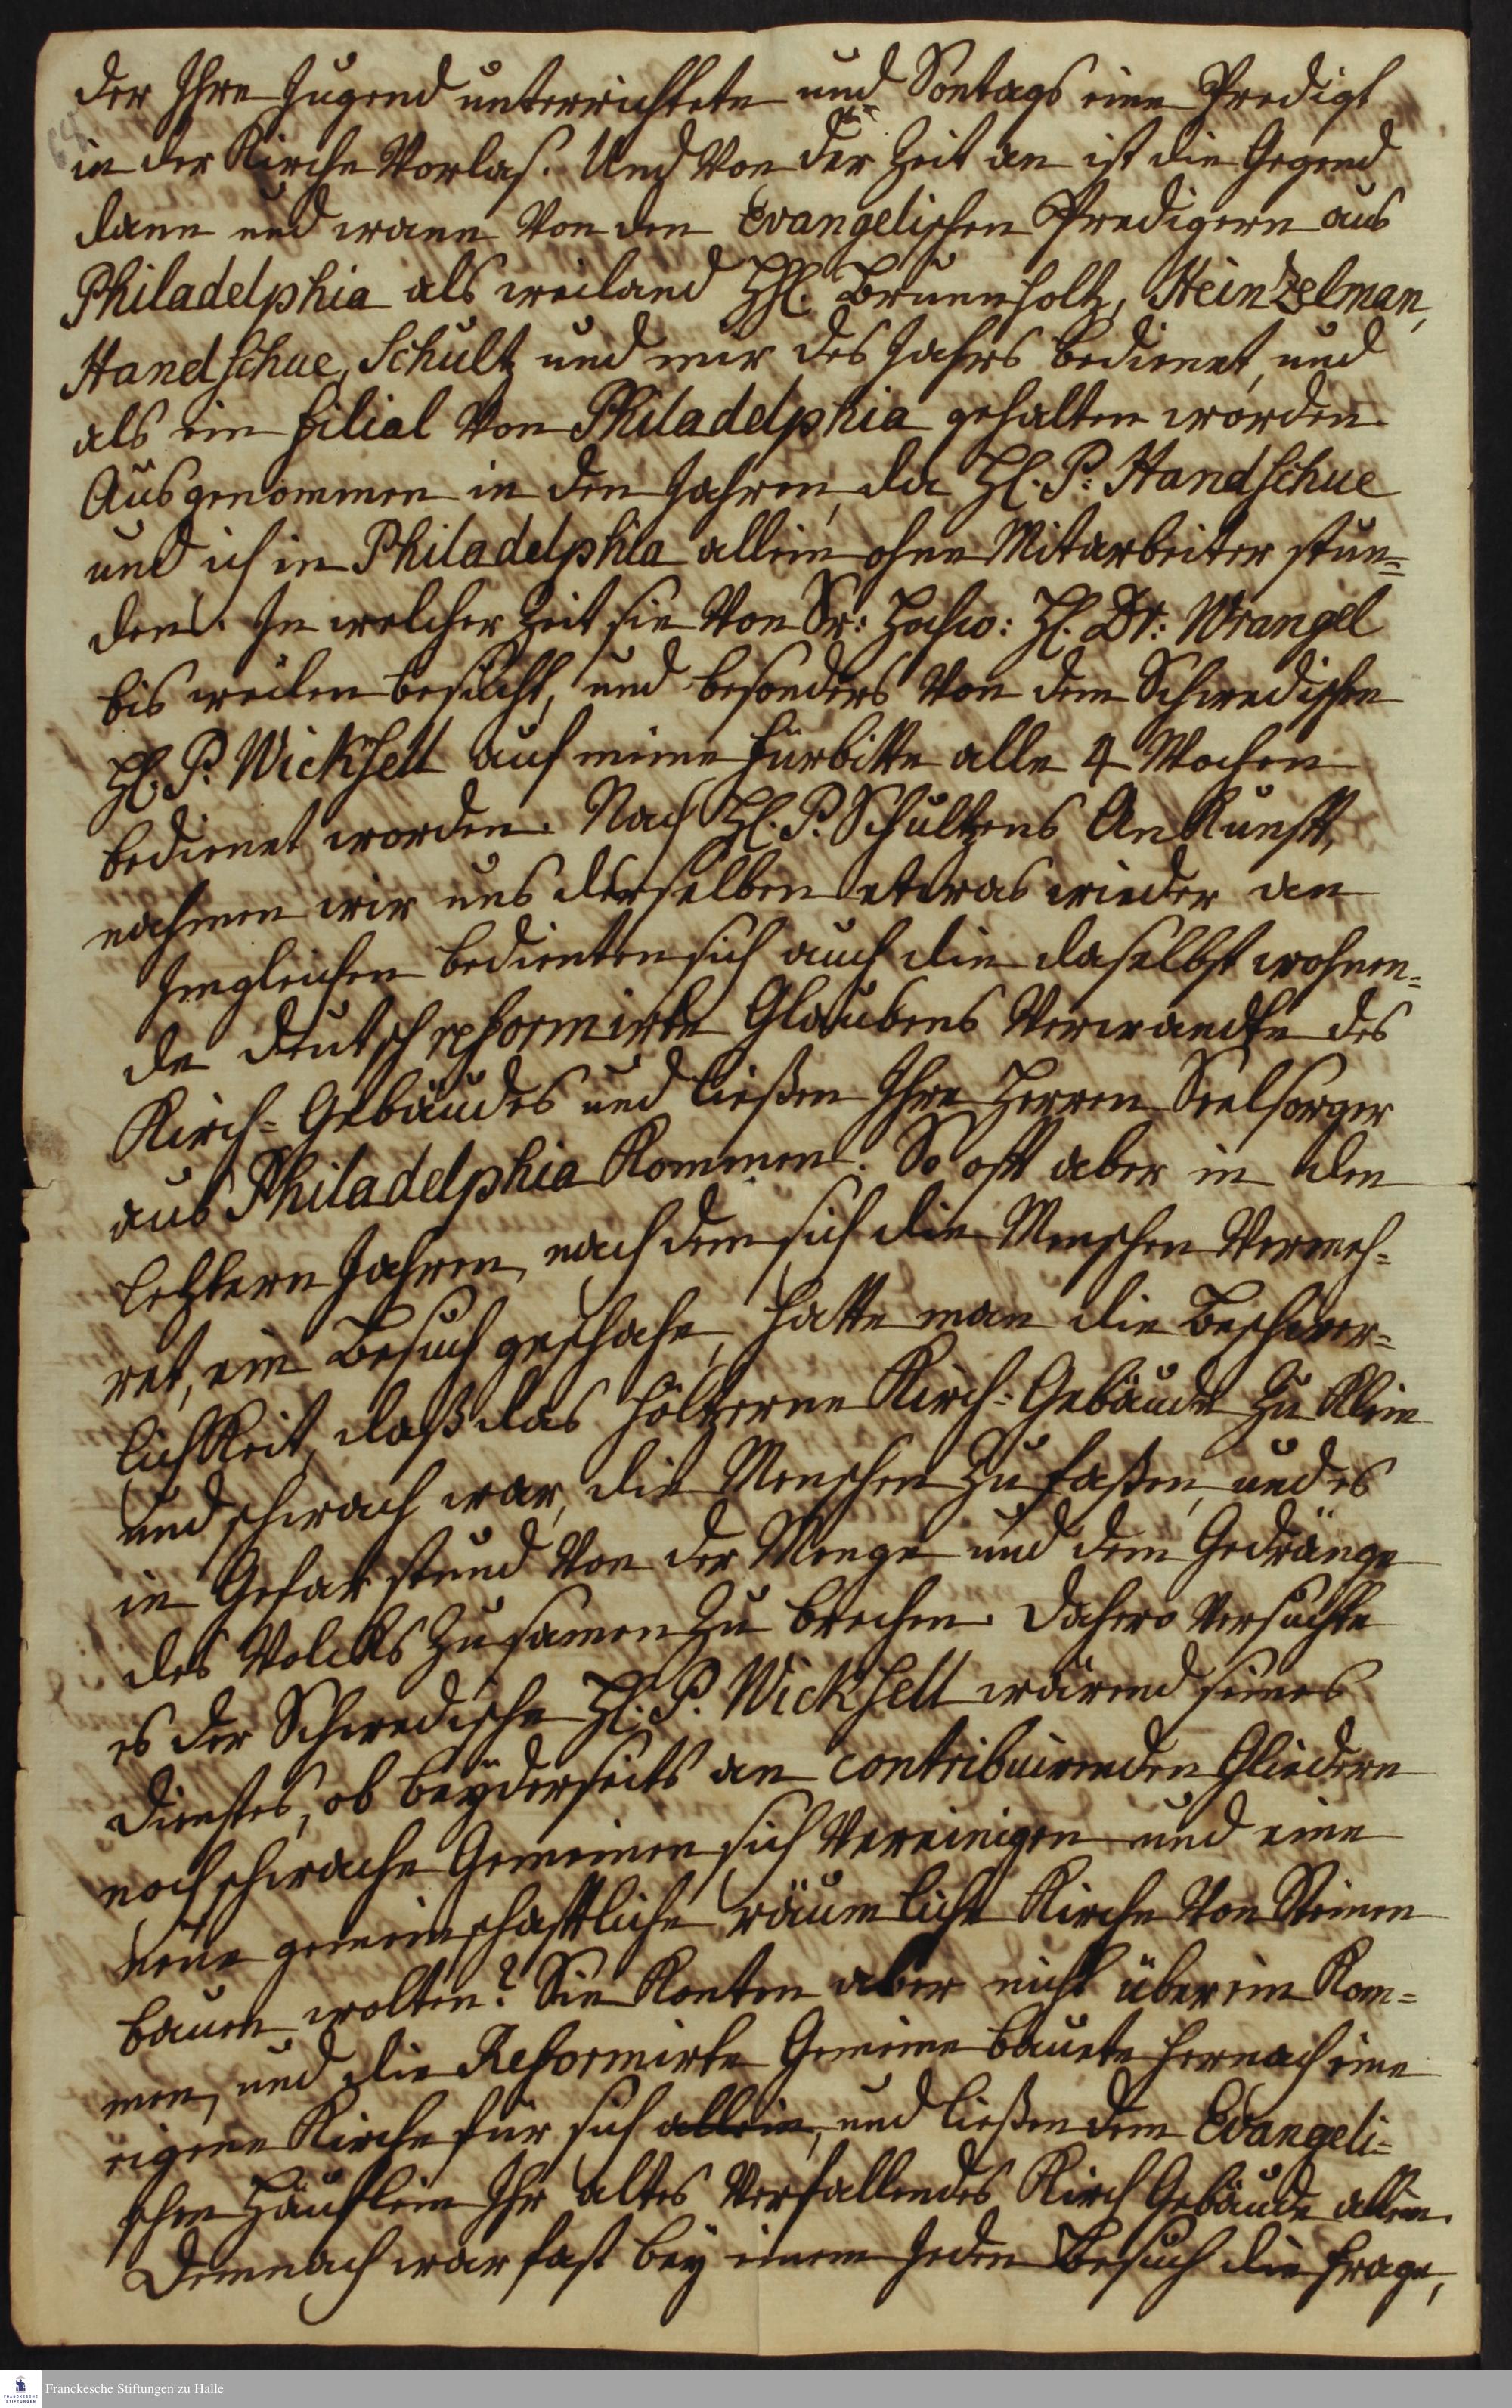 der Ihre Jugend unterrichtete und Sontags eine Predigt
68
in der Kirche Vorlas. Und Von der Zeit an ist die Gegend
dann und wann Von den Evangelischen Predigern aus
Philadelphia als weiland HhE. Brunnholtz, Heinzelman,
Handschue, Schultz und mir des Jahrs bedienet, und
als ein filial Von Philadelphia gehalten worden.
Ausgenommen in den Jahren, da HE. P. Handschue
und ich in Philadelphia allein ohne Mitarbeiter stun=
den. In welcher Zeit sie Von Sr: Hochw: HE. Dr: Wrangel
bis weilen besucht, und besonders Von dem Schwedischen
HE. P. Wicksell auf meine Fürbitte alle 4 Wochen
bedienet worden. Nach HE. P. Schultzens Ankunfft,
nahmen wir uns derselben etwas wieder an
Imgleichen bedienten sich auch die daselbst wohnen=
de deutsch reformirte Glaubens Verwandte des
Kirch=Gebäudes und ließen Ihre Herren Seelsorger
aus Philadelphia kommen. So oft aber in den
letztern Jahren, nach dem sich die Menschen Vermeh=
ret, ein Besuch geschahe, hatte man die Beschwer=
lichkeit, daß das höltzerne Kirch=Gebäude zu klein
und schwach war, die Menschen zu faßen, und es
in Gefar stund Von der Menge und dem Gedränge
des Volcks zusamen zu brechen. Dahero Versuchte
es der Schwedische HE. P. Wicksell wärend seines
Dienstes, ob beyderseits an contribuirenden Gliedern
noch schwache Gemeinen sich Vereinigen und eine
neue gemeinschaftliche räumliche Kirche Von Steinen
bauen wolten? Sie konten aber nicht überein kom=
men, und die Reformirte Gemeine bauete hernach eine
eigene Kirche für sich allein, und ließen dem Evangeli=
schen Häuflein Ihr altes Verfallendes Kirch Gebäude allein.
Demnach war fast bey einem jeden Besuch die Frage,
Franckesche Stiftungen zu Halle